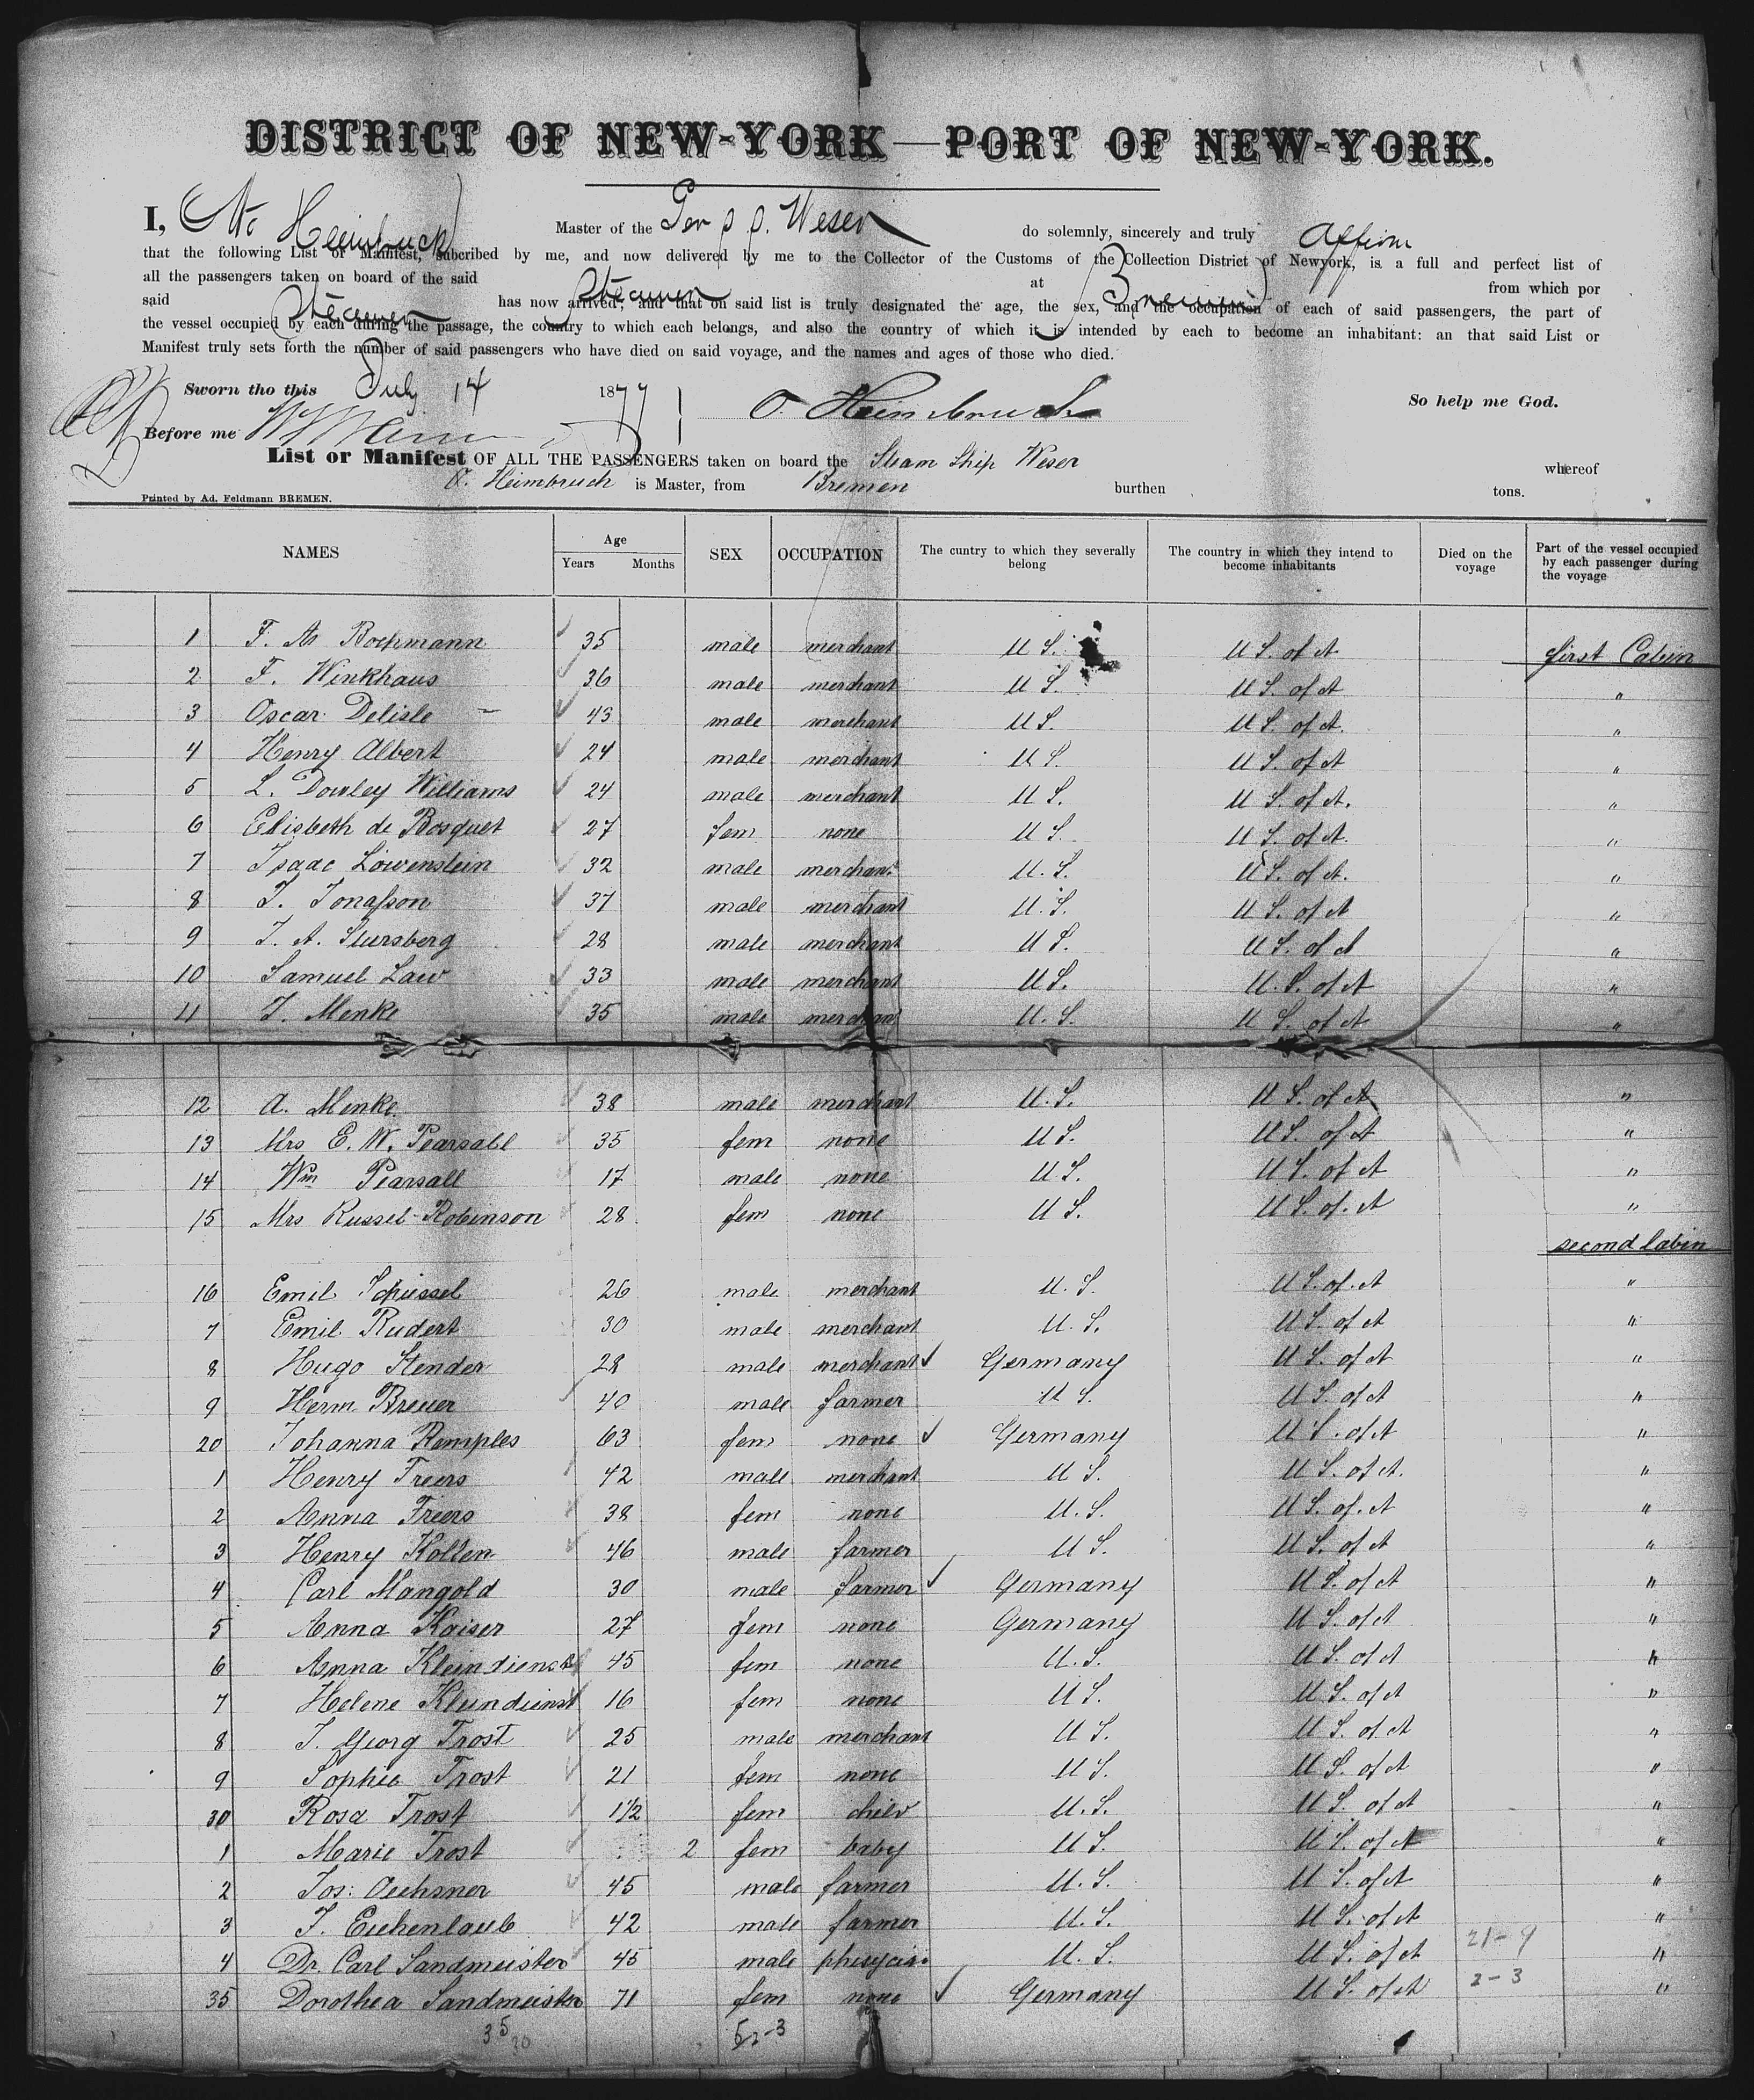 DISTRICT OF NEW-YORK—PORT OF NEW-YORK.
I, Otto Heimbruch Master of the Ger s s. Weser do solemnly, sincerely and truly affirm
that the following List or Manifest, subcribed by me, and now delivered by me to the Collector of the Customs of the Collection District of Newyork, is a full and perfect list of
all the passengers taken on board of the said Steamer at Bremen from which por
said Steamer has now arrived; and that on said list is truly designated the age, the sex, and the occupation of each of said passengers, the part of
the vessel occupied by each during the passage, the country to which each belongs, and also the country of which it is intended by each to become an inhabitant: an that said List or
Manifest truly sets forth the number of said passengers who have died on said voyage, and the names and ages of those who died.
Sworn tho this July 14 1877 O. Heimbruch So help me God.
Before me
List or Manifest OF ALL THE PASSENGERS taken on board the Steam Ship Weser whereof
O. Heimbruch is Master, from Bremen burthen tons.
Printed by Ad. Feldmann BREMEN.
NAMES Age Years Months SEX OCCUPATION The cuntry to which they severally belong The country in which they intend to become inhabitants Died on the voyage Part of the vessel occupied by each passenger during the voyage
1 F. A. Bochmann 35 male merchant U S. U S. of A first Cabin
2 F. Winkhaus 36 male merchant U S. U S. of A "
3 Oscar Delisle 43 male merchant U S. U S. of A. "
4 Henry Albert 24 male merchant U S. U S. of A "
5 L. Dowley Williams 24 male merchant U S. U S. of A. "
6 Elisbeth de Bosquet 27 fem none U S. U S. of A. "
7 Isaac Löwenstein 32 male merchant U. S. U S. of A. "
8 J. Jonasson 37 male merchant U. S. U S. of A "
9 J. A. Stursberg 28 male merchant U S. U S. of A "
10 Samuel Law 33 male merchant U S. U. S. of A "
11 J. Menke 35 male merchant U. S. U S. of A "
12 A. Menke 38 male merchant U. S. U S. of A "
13 Mrs E. W. Pearsall 35 fem none U S. U S. of A "
14 Wm Pearsall 17 male none U S. U S. of A "
15 Mrs Russel-Robinson 28 fem none U S. U S. of. A "
second Cabin
16 Emil Schüssel 26 male merchant U. S. U S. of. A "
7 Emil Rudert 30 male merchant U. S. U S. of A "
8 Hugo Stender 28 male merchant Germany U S. of A "
9 Herm. Breuer 40 male farmer U S. U S. of A "
20 Johanna Remples 63 fem none Germany U S. of A "
1 Henry Freers 42 male merchant U S. U S. of A. "
2 Anna Freers 38 fem none U. S. U S. of. A "
3 Henry Kollen 46 male farmer U S. U S. of A "
4 Carl Mangold 30 male farmer Germany U S. of A "
5 Anna Kaiser 27 fem none Germany U S. of A "
6 Anna Kleindienst 45 fem none U. S. U S. of A "
7 Helene Kleindienst 16 fem none U S. U S. of A "
8 J. Georg Trost 25 male merchant U S. U S. of A "
9 Sophie Trost 21 fem none U S. U S. of A "
30 Rosa Trost 1 1/2 fem child U. S. U S. of A "
1 Marie Trost 2 fem baby U S. U S. of A "
2 Jos: Oechsner 45 male farmer U. S. U S. of A "
3 J. Eichenlaub 42 male farmer U. S. U S. of A "
4 Dr. Carl Sandmeister 45 male phisycian U. S. U S. of A 21-9 "
35 Dorothea Sandmeister 71 fem none Germany U S. of A 2-3 "
35 30